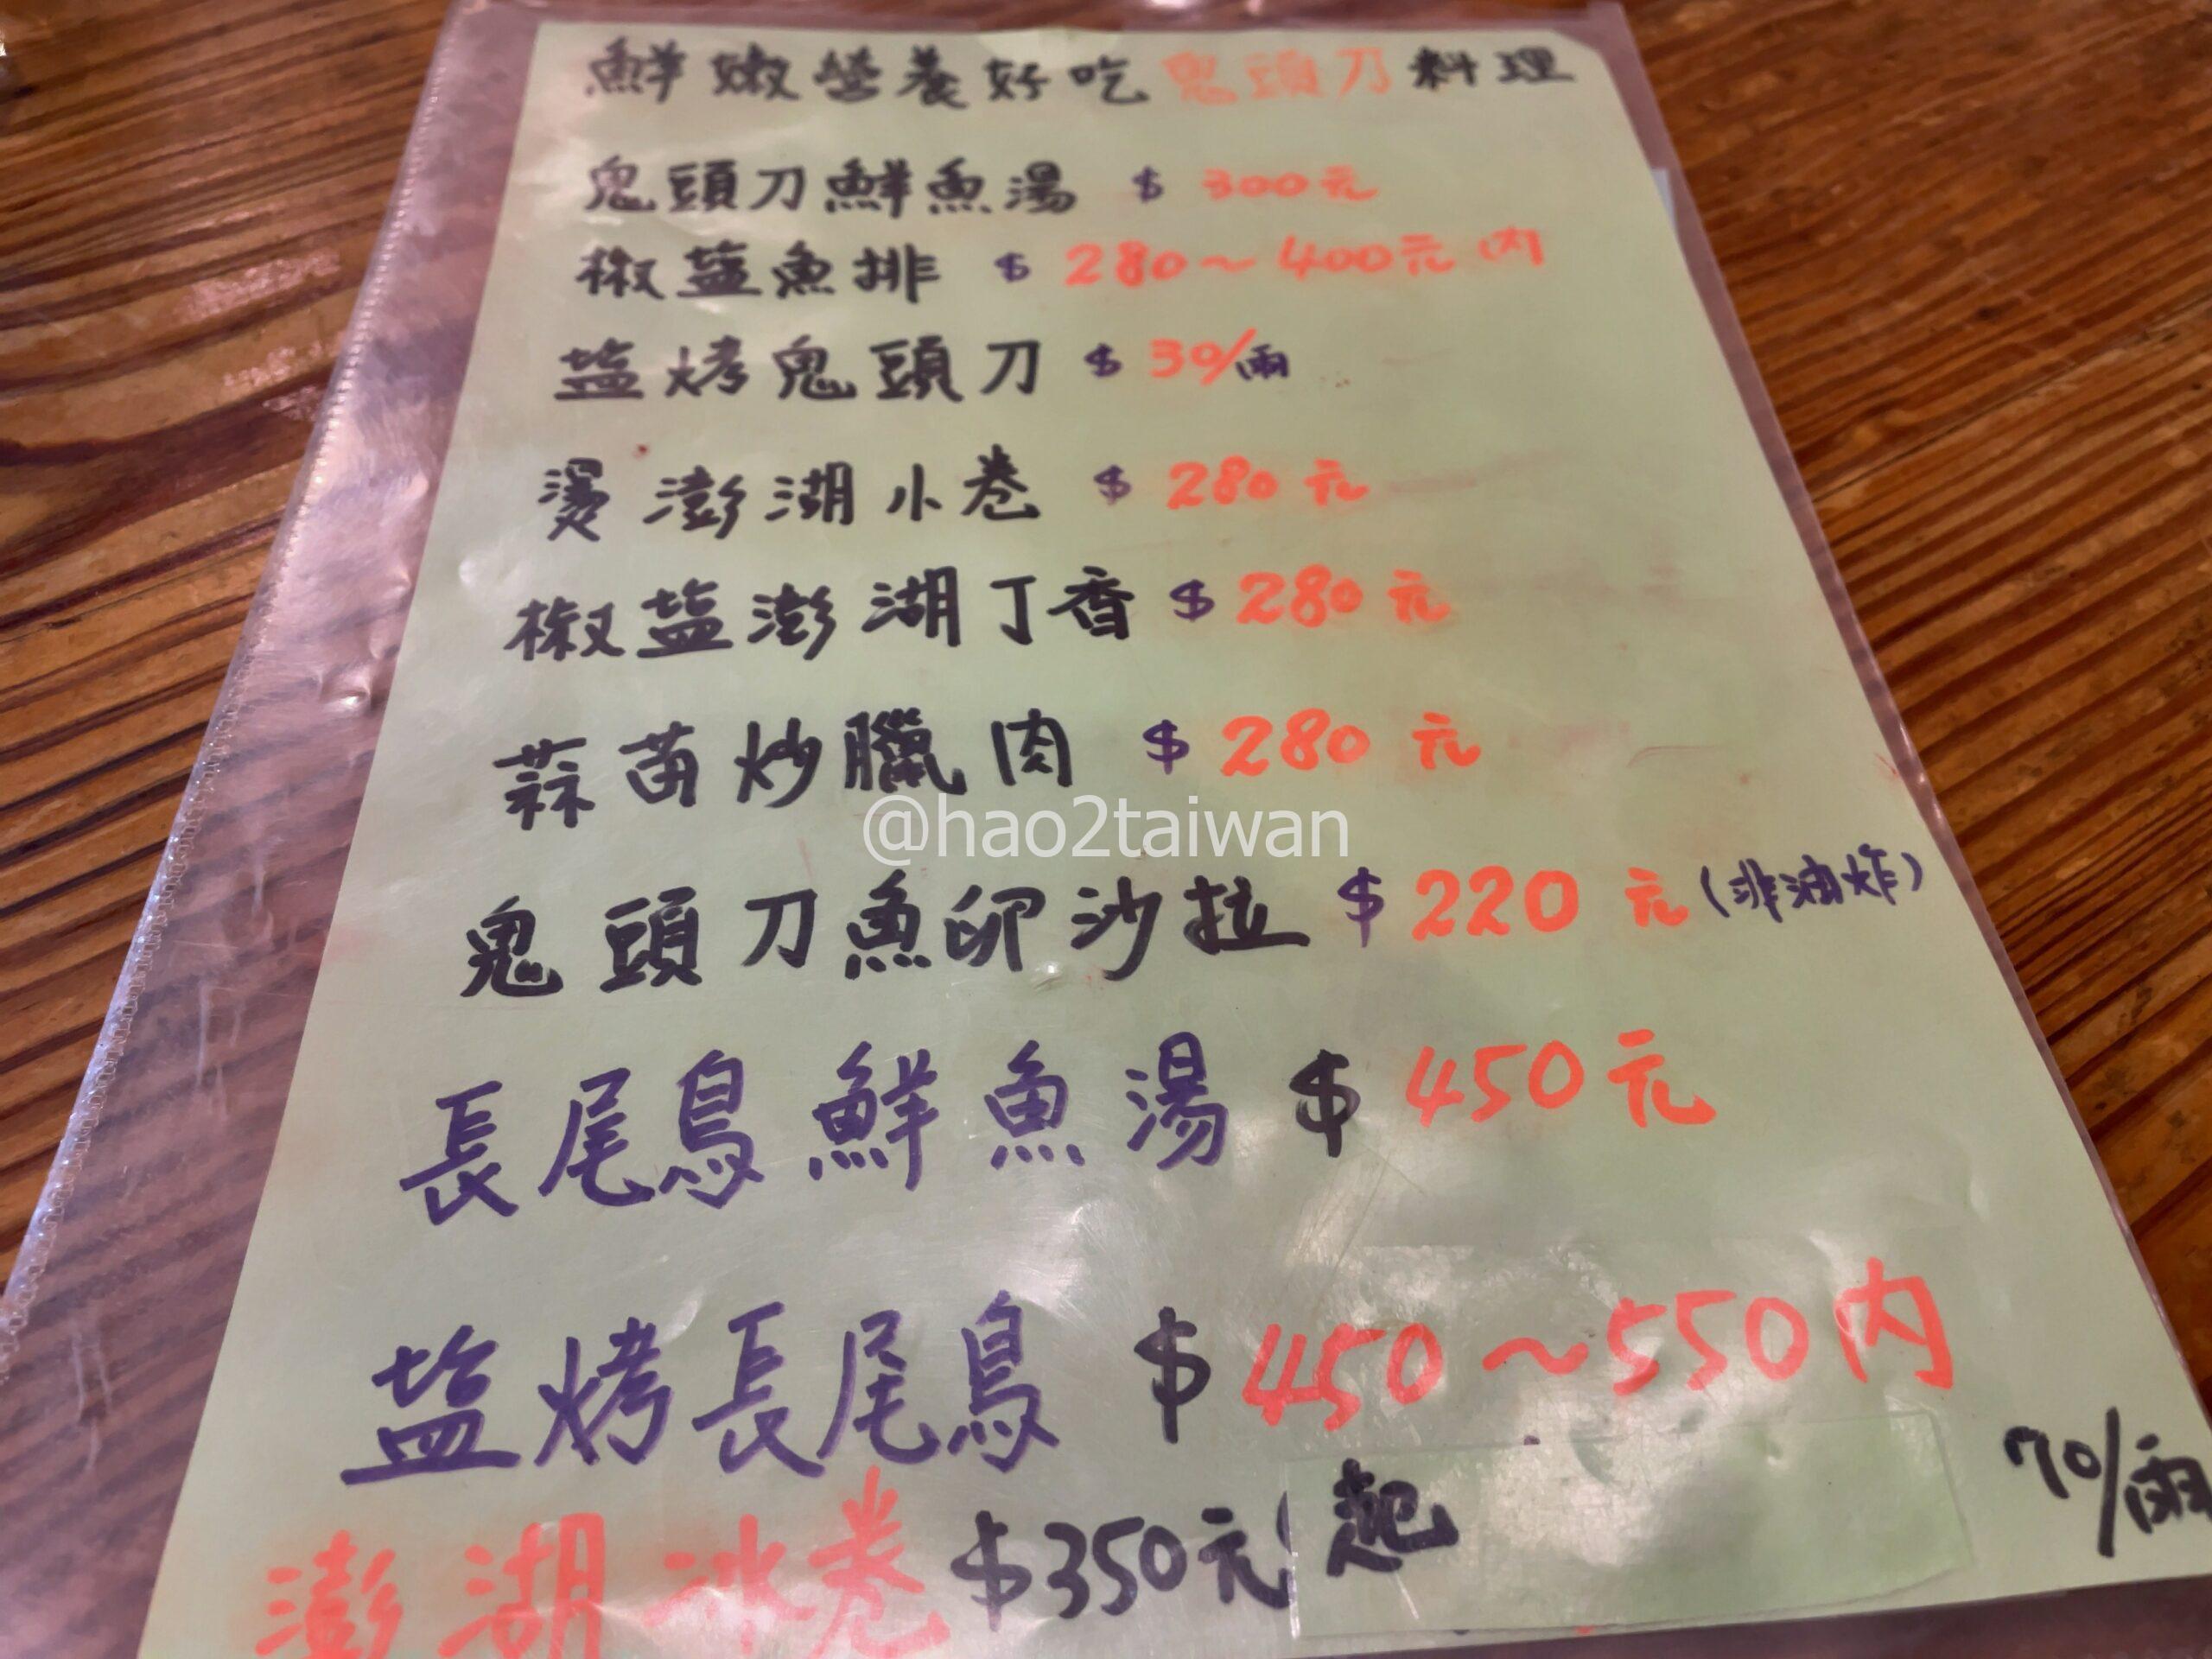 鮮嫩營養好吃鬼頭刀料理
鬼頭刀鮮魚湯 $ 300元
椒盐魚排 $ 280～400元內
盐烤鬼頭刀 $ 30/兩
燙澎湖小卷 $ 280元
椒盐澎湖丁香 $ 280元
蒜苗炒臘肉 $ 280元
@hao2taiwan
鬼頭刀魚卵沙拉 $ 220元(非油炸)
長尾鳥鮮魚湯 $ 450元
盐烤長尾鳥 $ 450～550內
70/兩
澎湖冰卷 $350元起